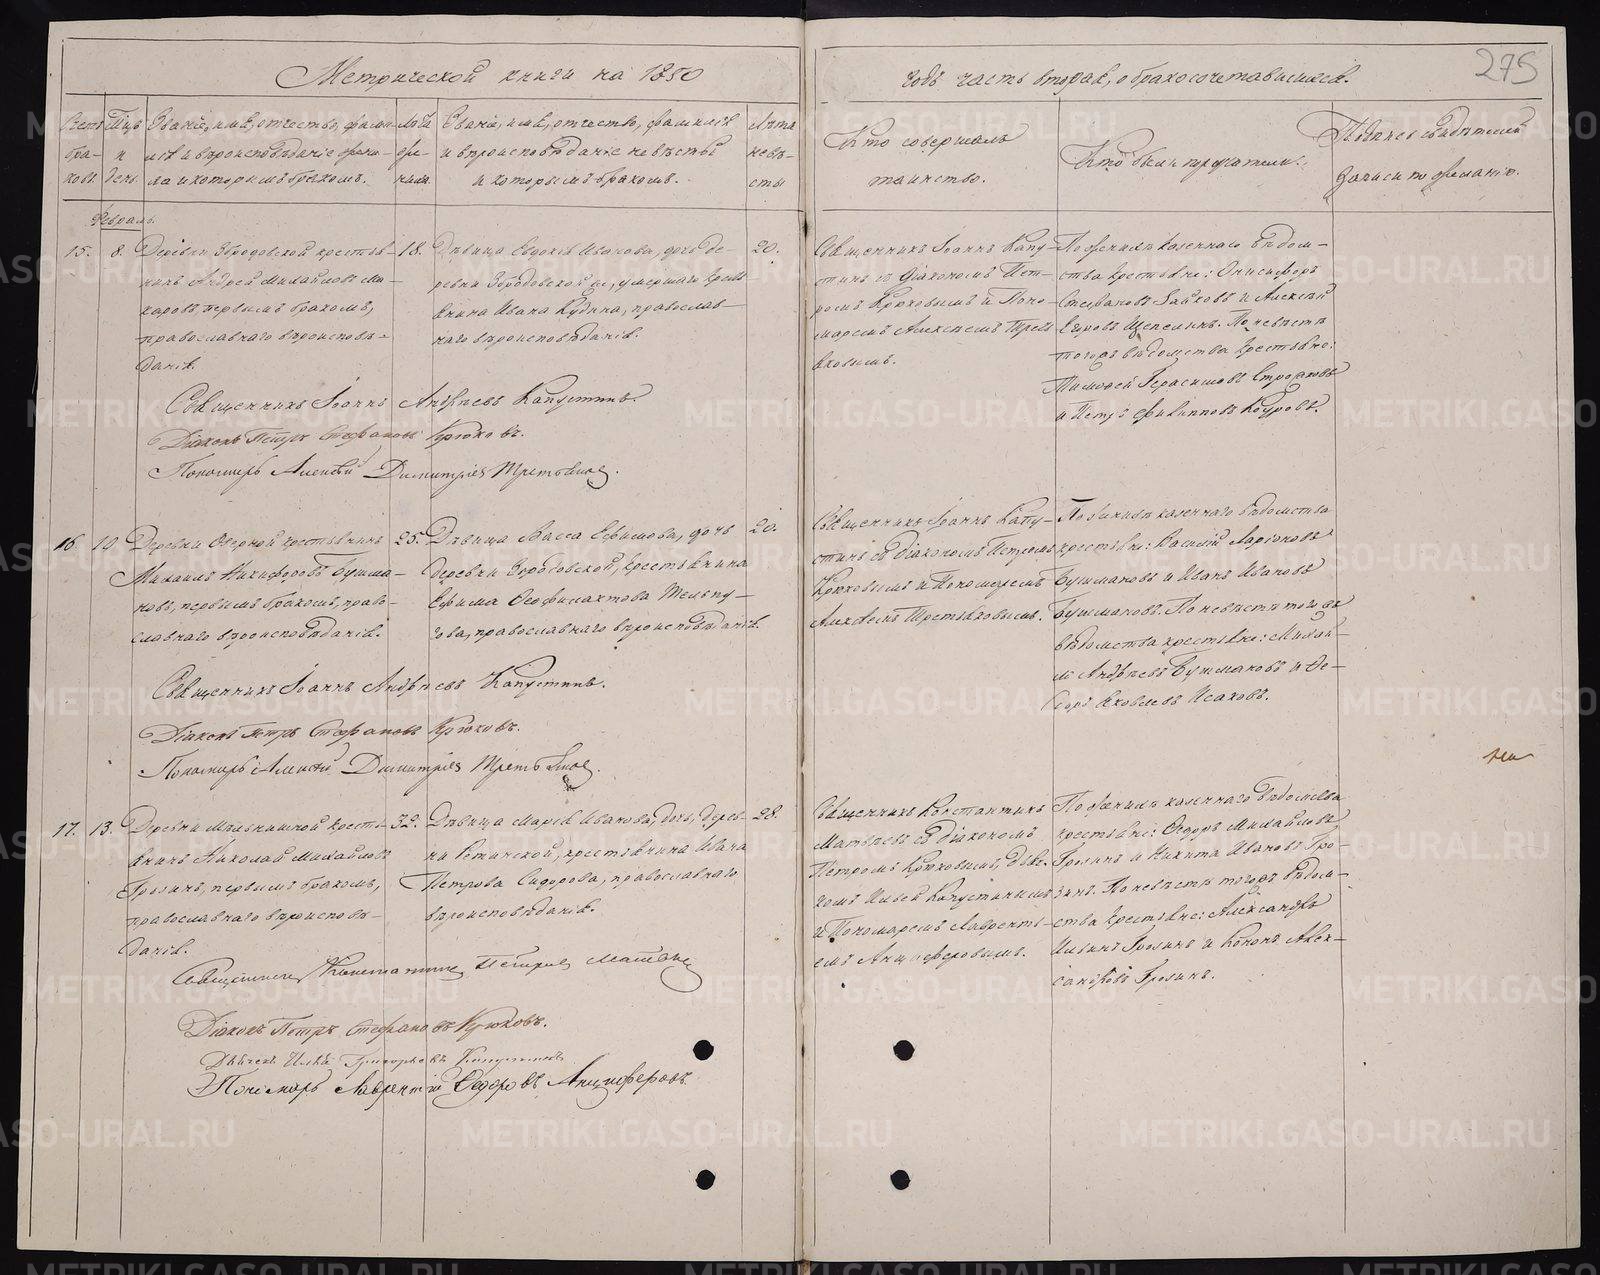 Метрической книги на 1850
годъ часть вторая, о бракосочетавшихся.
275
Счетъ браковъ.
Мцъ и день.
Званіе, имя, отчество, фами-
лія и вѣроисповѣданіе жени-
ха и которымъ бракомъ.
Лѣта жениха.
Званіе, имя, отчество, фамилія
и вѣроисповѣданіе невѣсты
и которымъ бракомъ.
Лѣта невѣ-
сты
Кто совершалъ
таинство.
Кто были поручители.
Подпись свидѣтелей
записи по желанію.
Февраль.
15.
8.
Деревни Збродовской крестья-
нинъ Андрей Михайловъ Ма-
каровъ, первымъ бракомъ,
православнаго вѣроисповѣ-
данія.
18.
Дѣвица Евдокія Иванова, дочь де-
ревни Збродовской же, умершаго кресть-
янина Ивана Кудина, православ-
наго вѣроисповѣданія.
20.
Священникъ Іоаннъ Капу-
стинъ съ діакономъ Пет-
ромъ Крюковымъ и Поно-
маремъ Алексѣемъ Треть-
яковымъ.
По женихѣ казеннаго вѣдом-
ства крестьяне: Онисифоръ
Стефановъ Зайковъ и Алексѣй
Егоровъ Щепелинъ. По невѣстѣ
тогожъ вѣдомства крестьяне:
Тимофей Герасимовъ
и Петръ Филипповъ
Священникъ Іоаннъ Андреевъ Капустинъ.
Діаконъ Петръ Стефановъ Крюковъ.
Пономарь Алексѣй Димитріевъ Третьяковъ.
16.
10
Деревни Озерной крестьянинъ
Михаилъ Никифоровъ Бушма-
новъ, первымъ бракомъ, право-
славнаго вѣроисповѣданія.
25.
Дѣвица Васса Ефимова, дочь
деревни Збродовской, крестьянина
Ефима Феофилактова Мельну-
гова, православнаго вѣроисповѣданія.
20.
Священникъ Іоаннъ Капу-
стинъ съ діакономъ Петромъ
Крюковымъ и Пономаремъ
Алексѣемъ Третьяковымъ.
По женихѣ казеннаго вѣдомства
крестьяне: Василій Ларіоновъ
Бушмановъ и Иванъ Ивановъ
Бушмановъ. По невѣстѣ тогожъ
вѣдомства крестьяне: Михаи-
лъ Андреевъ Бушмановъ и Ѳе-
доръ Яковлевъ Исаковъ.
Священникъ Іоаннъ Андреевъ Капустинъ.
Діаконъ Петръ Стефановъ Крюковъ.
Пономарь Алексѣй Димитріевъ Третьяковъ.
17.
13.
Деревни Мельнишной кресть-
янинъ Николай Михайловъ
Грозинъ, первымъ бракомъ,
православнаго вѣроисповѣ-
данія.
32.
Дѣвица Марія Иванова, дочь, дерев-
ни Ретинской, крестьянина Ивана
Петрова Сидорова, православнаго
вѣроисповѣданія.
28.
Священникъ Константинъ
Матвѣевъ съ діакономъ
Петромъ Крюковымъ, дьяч-
комъ Ильей Капустинымъ
и Пономаремъ Лаврентi-
емъ Анциферовымъ.
По женихѣ казеннаго вѣдомства
крестьяне: Ѳедоръ Михайловъ
Грозинъ и Никита Ивановъ Гро-
зинъ. По невѣстѣ тогожъ вѣдом-
ства крестьяне: Александръ
Ильинъ Грозинъ и Кононъ Алек-
сандровъ Грозинъ.
Священникъ Константинъ Петровъ Матвѣевъ
Діаконъ Петръ Стефановъ Крюковъ.
Дьячекъ Илья Григорьевъ Капустинъ
Пономарь Лаврентій Ѳедоровъ Анциферовъ.
METRIKI.GASO-URAL.RU